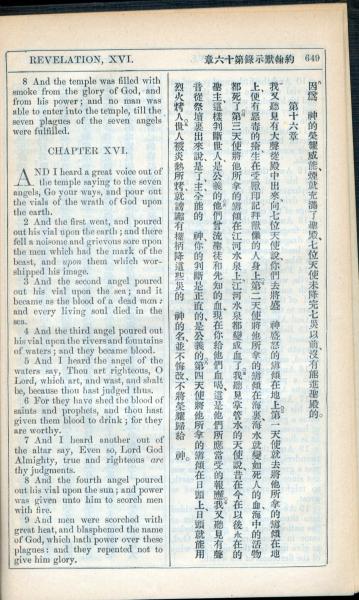 REVELATION, XVI.
約翰默示錄第十六章
649
8 And the temple was filled with
smoke from the glory of God, and
from his power; and no man was
able to enter into the temple, till the
seven plagues of the seven angels
were fulfilled.
CHAPTER XVI.
AND I heard a great voice out of
the temple saying to the seven
angels, Go your ways, and pour out
the vials of the wrath of God upon
the earth.
2 And the first went, and poured
out his vial upon the earth; and there
fell a noisome and grievous sore upon
the men which had the mark of the
beast, and upon them which wor-
shipped his image.
3 And the second angel poured
out his vial upon the sea; and it
became as the blood of a dead man:
and every living soul died in the
sea.
4 And the third angel poured out
his vial upon the rivers and fountains
of waters; and they became blood.
5 And I heard the angel of the
waters say, Thou art righteous, O
Lord, which art, and wast, and shalt
be, because thou hast judged thus.
6 For they have shed the blood of
saints and prophets, and thou hast
given them blood to drink; for they
are worthy.
7 And I heard another out of
the altar say, Even so, Lord God
Almighty, true and righteous are
thy judgments.
8 And the fourth angel poured
out his vial upon the sun; and power
was given unto him to scorch men
with fire.
9 And men were scorched with
great heat, and blasphemed the name
of God, which hath power over these
plagues: and they repented not to
give him glory.
因爲 神的榮耀威能煙就充滿了聖殿七位天使未降完七災以前沒有能進聖殿的。
第十六章
我又聽見有大聲從殿中出來向七位天使說你們去將盛 神盛怒的碗傾在地上第一天使就去將他所拿的碗傾在地
上便有惡毒的瘡生在受獸印記拜獸像的人身上第二天使將他所拿的碗傾在海裏海水就變如死人的血海中的活物
都死了第三天使將他所拿的碗傾在江河水泉上江河水泉都變成血了我聽見掌管水的天使說昔在今在以後永在的
聖主這樣判斷世人是公義的他們曾流聖徒和先知的血現在你給他們血喝這是他們所應當受的報應我又聽見有聲
音從祭壇裏出來說是了主全能的 神你的判斷是正直的是公義的第四天使將他所拿的碗傾在日頭上日頭就能用
烈火烤人世人被炎熱所烤就謗讟有權柄降這些災的 神的名並不悔改不將榮耀歸給 神。